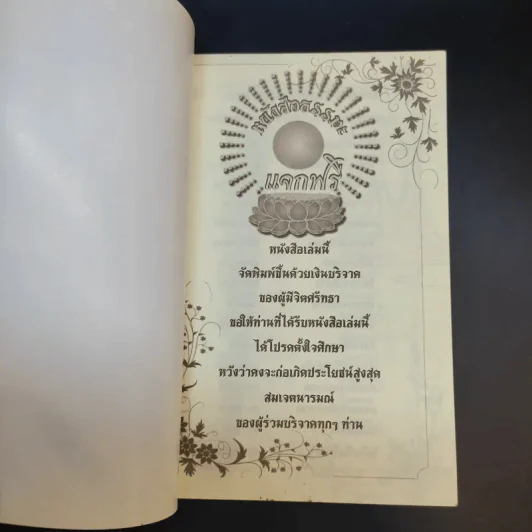 หนังสือธรรมะ
แจกฟรี
หนังสือเล่มนี้
จัดพิมพ์ขึ้นด้วยเงินบริจาค
ของผู้มีจิตศรัทธา
ขอให้ท่านที่ได้รับหนังสือเล่มนี้
ได้โปรดตั้งใจศึกษา
หวังว่าคงจะก่อเกิดประโยชน์สูงสุด
สมเจตนารมณ์
ของผู้ร่วมบริจาคทุกๆ ท่าน